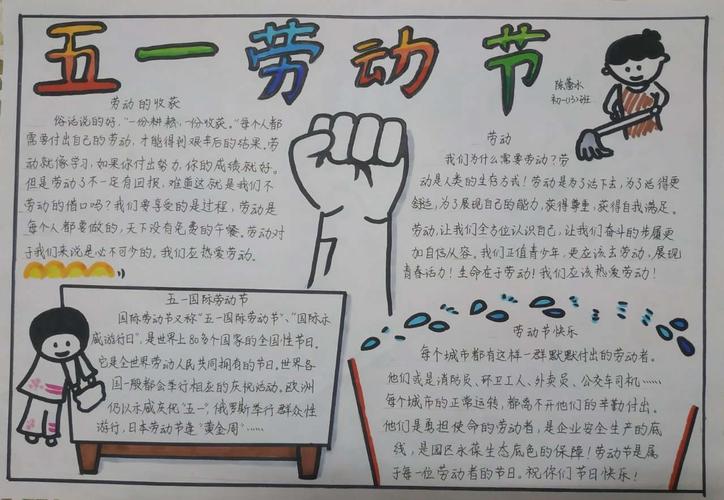 五一劳动节
陈萱水
初一(13)班
劳动的收获
俗话说的好,“一份耕耘,一份收获。”每个人都
需要付出自己的劳动,才能得到艰辛后的结果。劳
动就像学习,如果你付出努力,你的成绩就好。
但是劳动了不一定有回报,难道这就是我们不
劳动的借口吗?我们要享受的是过程,劳动是
每个人都要做的,天下没有免费的午餐。劳动对
于我们来说是必不可少的。我们应热爱劳动。
劳动
我们为什么需要劳动?劳
动是人类的生存方式!劳动是为了活下去,为了活得更
舒适,为了展现自己的能力,获得尊重,获得自我满足。
劳动,让我们全方位认识自己,让我们奋斗的步履更
加自信从容。我们正值青少年,更应该去劳动,展现
青春活力!生命在于劳动!我们应该热爱劳动!
五一国际劳动节
国际劳动节又称“五一国际劳动节”、“国际示
威游行日”,是世界上80多个国家的全国性节日。
它是全世界劳动人民共同拥有的节日。世界各
国一般都会举行相应的庆祝活动。欧洲
仍以示威庆祝“五一”,俄罗斯举行群众性
游行,日本劳动节连“黄金周”……
劳动节快乐
每个城市都有这样一群默默付出的劳动者。
他们或是消防员、环卫工人、外卖员、公交车司机……
每个城市的正常运转,都离不开他们的辛勤付出。
他们是勇担使命的劳动者,是企业安全生产的底
线,是国区永葆生态底色的保障!劳动节是属
于每一位劳动者的节日。祝你们节日快乐!